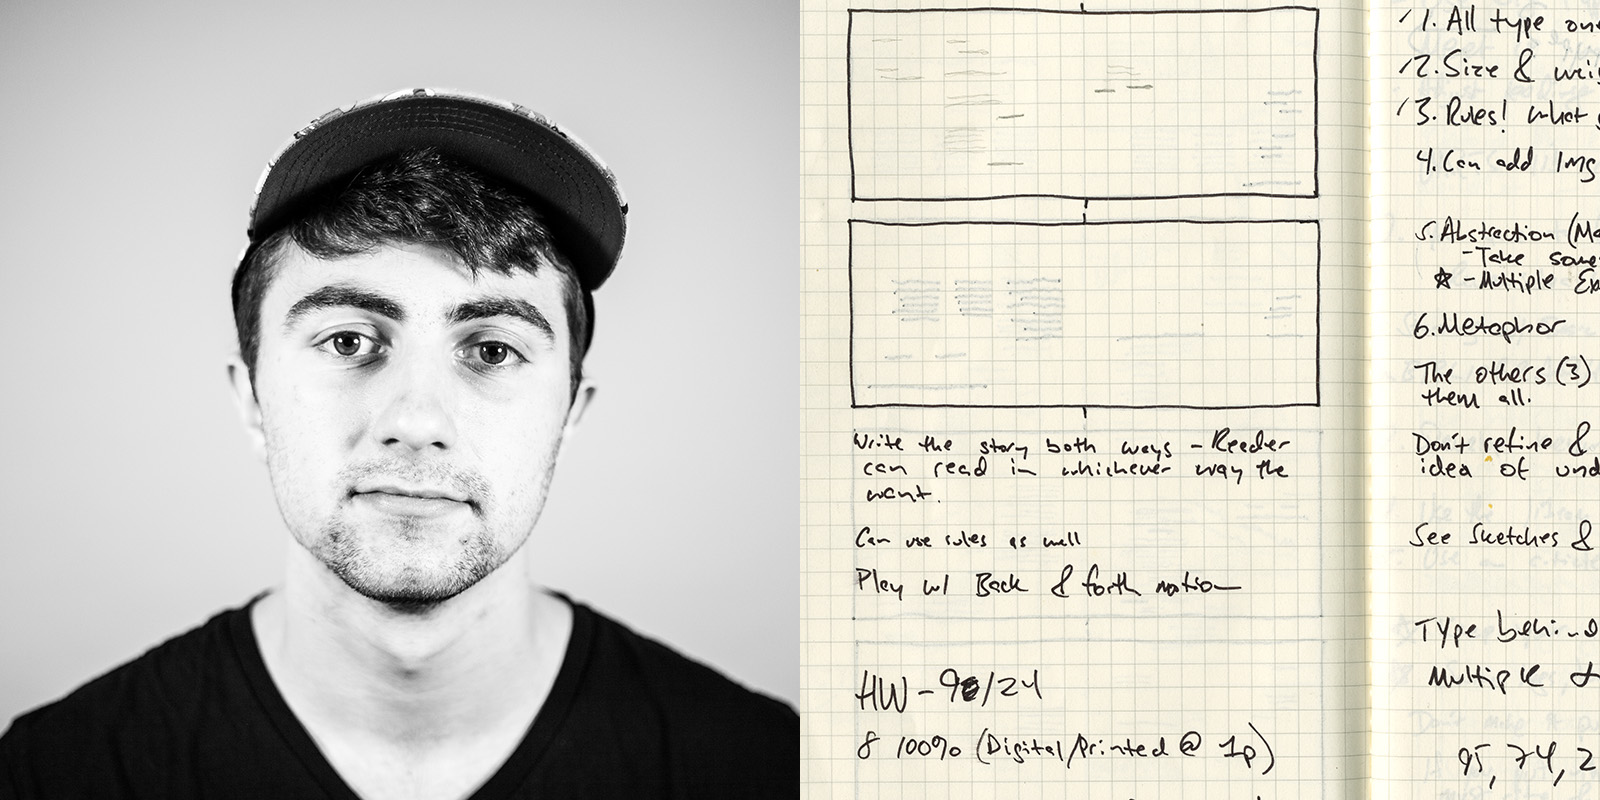 Write the story both ways - Reader
can read in whichever way the
want.
Can use rules as well
Play w/ Back & forth motion
HW - 9/24
8 100% (Digital/Printed @ 1p)
1. All type
2. Size &
3. Rules! what
4. Can add Img
5. Abstraction
- Take
- Multiple
6. Metaphor
The others (3)
them all.
Don't refine &
idea of
See Sketches &
Type behind
Multiple &
95, 74, 2